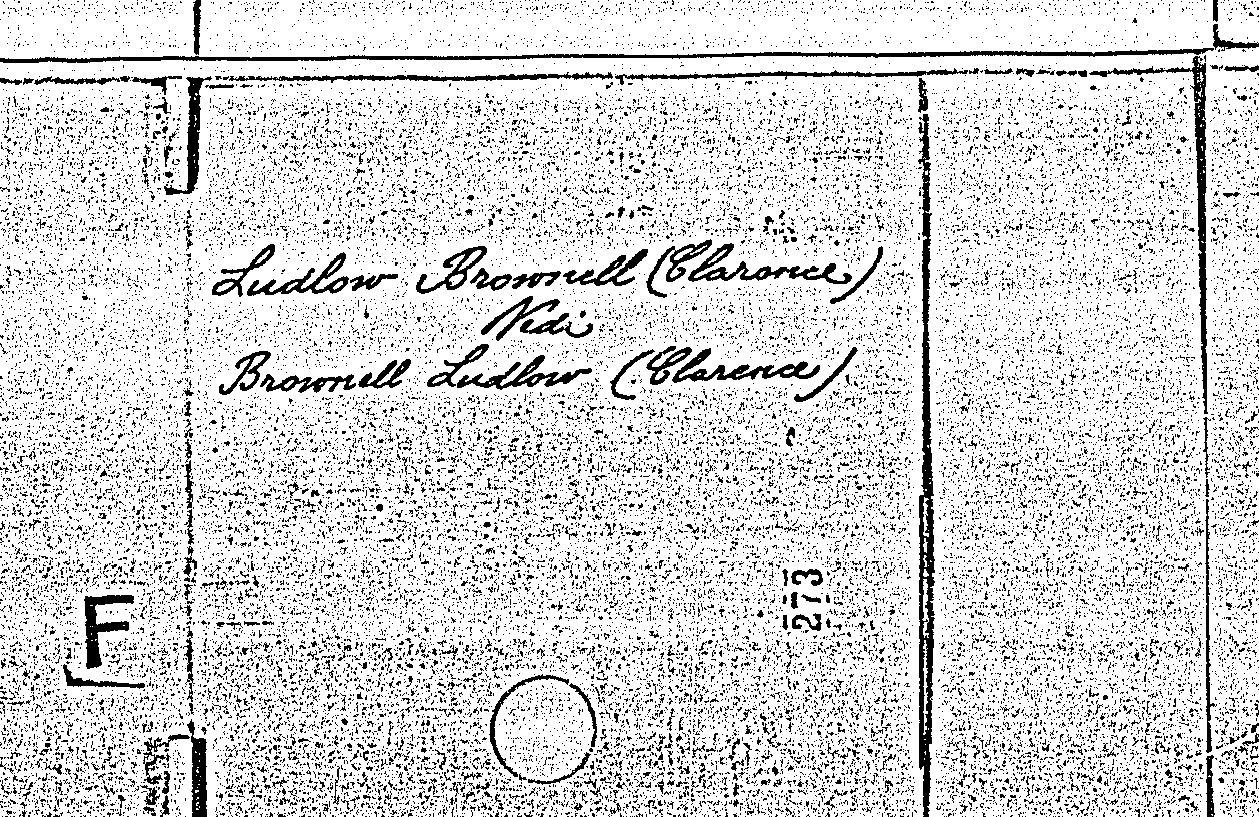 Ludlow Brownell (Clarence)
Vedi
Brownell Ludlow (Clarence)
F
273